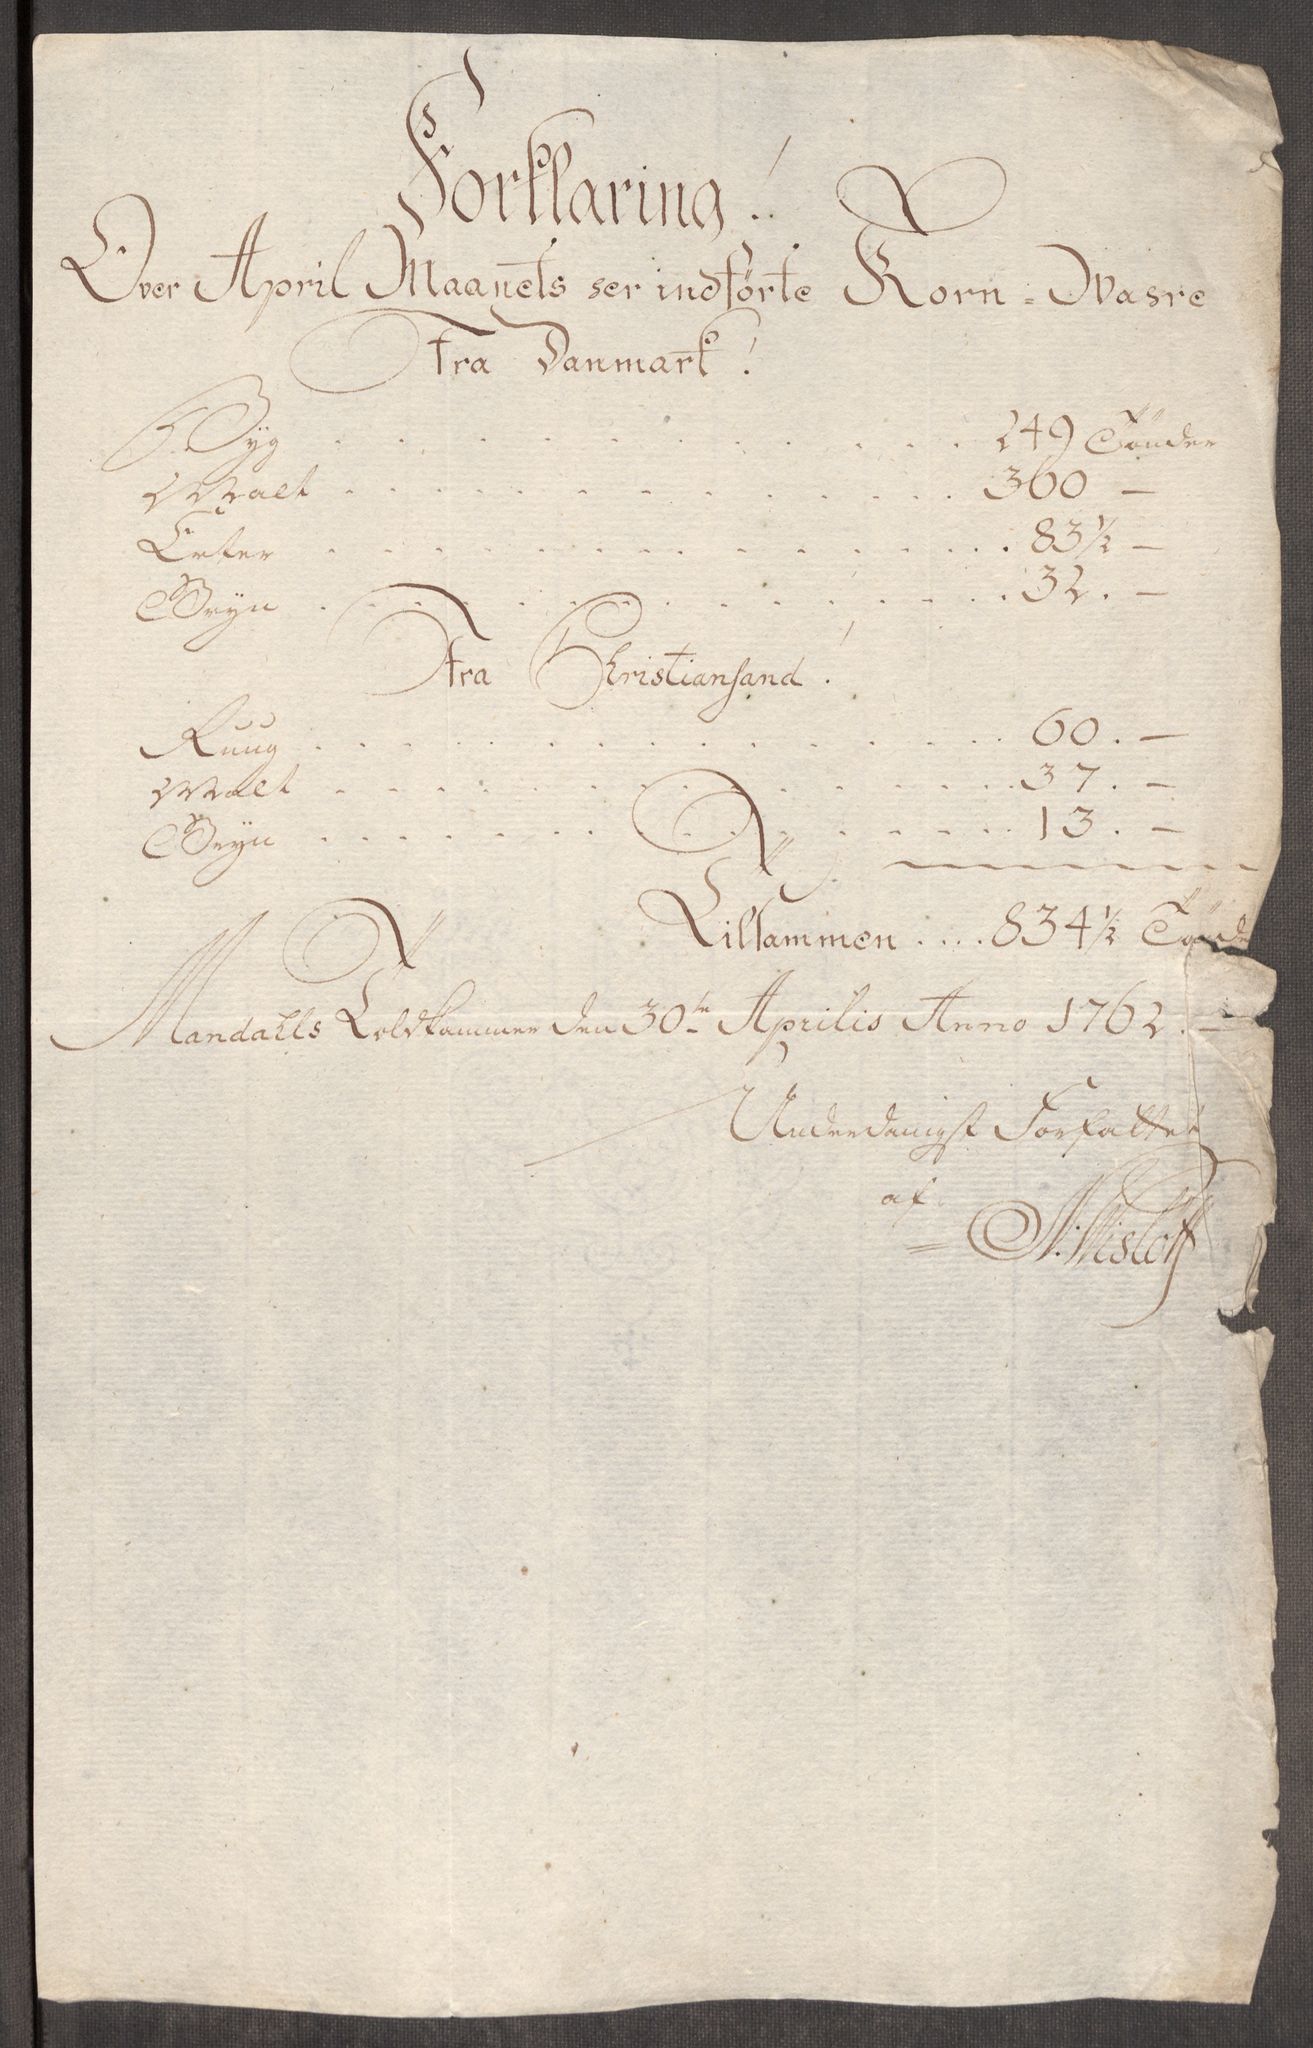 Forklaring!
Over April Maanets her indførte Korn-Wahre
Fra Danmark!
Byg . . . . . . . . . . . . . 249 Tönder
Malt . . . . . . . . . . . . . 360 –
Erter . . . . . . . . . . . . . 83 1/2 –
Gryn . . . . . . . . . . . . . 32. –
Fra Christiansand!
Ruug . . . . . . . . . . . . . 60. –
Malt . . . . . . . . . . . . . 37. –
Gryn . . . . . . . . . . . . . 13. –
Tilsammen .... 834 1/2 Tönde
Mandahls Toldkammer den 30te Aprilis Anno 1762. –
Underdanigst Forfattet
af